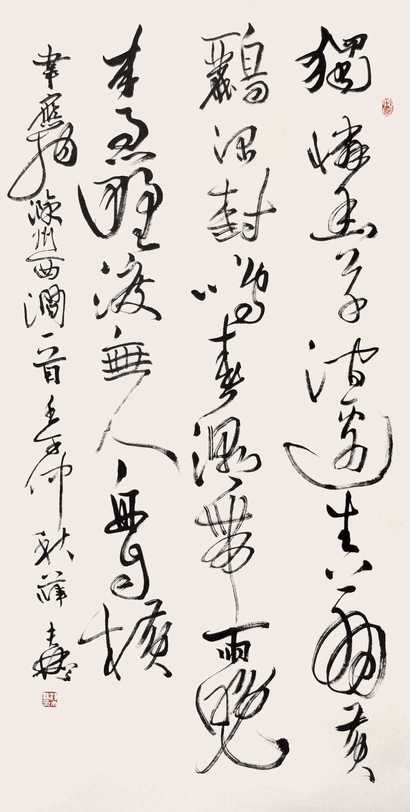 獨憐幽草澗邊生上有黃
鸝深樹鳴春潮帶雨晚
來急野渡無人舟自橫
韋應物滁州西澗一首壬午仲秋薛夫彬